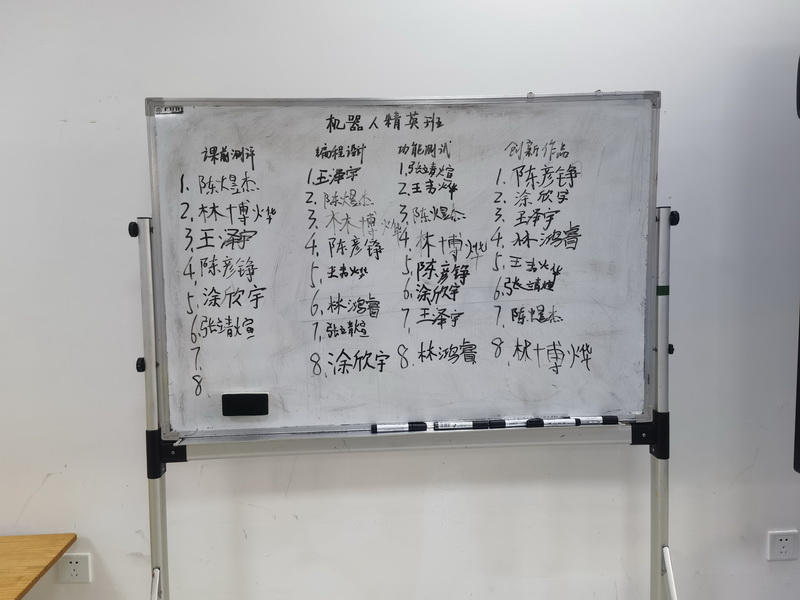 机器人精英班
课前测评
1. 陈煜杰
2. 林博烨
3. 王泽宇
4. 陈彦铮
5. 涂欣宇
6. 张靖煊
7
8
编程设计
1. 王泽宇
2. 陈煜杰
3. 林博烨
4. 陈彦铮
5. 王吉烨
6. 林鸿睿
7. 张靖煊
8. 涂欣宇
功能测试
1. 张靖煊
2. 王吉烨
3. 陈煜杰
4. 林博烨
5. 陈彦铮
6. 涂欣宇
7. 王泽宇
8. 林鸿睿
创新作品
1. 陈彦铮
2. 涂欣宇
3. 王泽宇
4. 林鸿睿
5. 王吉烨
6. 张靖煊
7. 陈煜杰
8. 林博烨